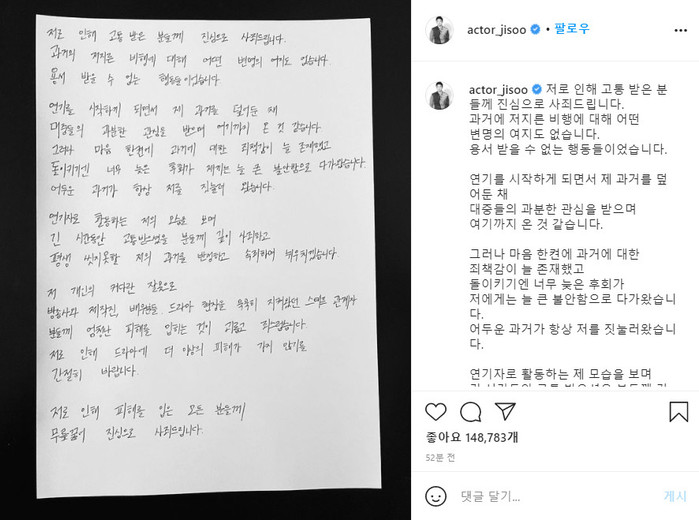 저로 인해 고통 받은 분들께 진심으로 사죄드립니다.
과거에 저지른 비행에 대해 어떤 변명의 여지도 없습니다.
용서 받을 수 없는 행동들이었습니다.
연기를 시작하게 되면서 제 과거를 덮어둔 채
대중들의 과분한 관심을 받으며 여기까지 온 것 같습니다.
그러나 마음 한켠에 과거에 대한 죄책감이 늘 존재했고
돌이키기엔 너무 늦은 후회가 저에게는 늘 큰 불안함으로 다가왔습니다.
어두운 과거가 항상 저를 짓눌러 왔습니다.
연기자로 활동하는 저의 모습을 보며
긴 시간동안 고통받으셨을 분들께 깊이 사죄하고
평생 씻지못할 저의 과거를 반성하고 속죄하며 뉘우치겠습니다.
저 개인의 커다란 잘못으로
방송사와 제작진, 배우분들, 드라마 현장을 묵묵히 지켜왔던 스텝프 관계자
분들께 엄청난 피해를 입히는 것이 괴롭고 죄스럽습니다.
저로 인해 드라마에 더 이상의 피해가 가지 않기를
간절히 바랍니다.
저로 인해 피해를 입은 모든 분들께
무릎꿇어 진심으로 사죄드립니다.
actor_jisoo • 팔로우
actor_jisoo 저로 인해 고통 받은 분
들께 진심으로 사죄드립니다.
과거에 저지른 비행에 대해 어떤
변명의 여지도 없습니다.
용서 받을 수 없는 행동들이었습니다.
연기를 시작하게 되면서 제 과거를 덮
어둔 채
대중들의 과분한 관심을 받으며
여기까지 온 것 같습니다.
그러나 마음 한켠에 과거에 대한
죄책감이 늘 존재했고
돌이키기엔 너무 늦은 후회가
저에게는 늘 큰 불안함으로 다가왔습니
다.
어두운 과거가 항상 저를 짓눌러왔습니
다.
연기자로 활동하는 제 모습을 보며
좋아요 148,783개
52분 전
댓글 달기...
게시